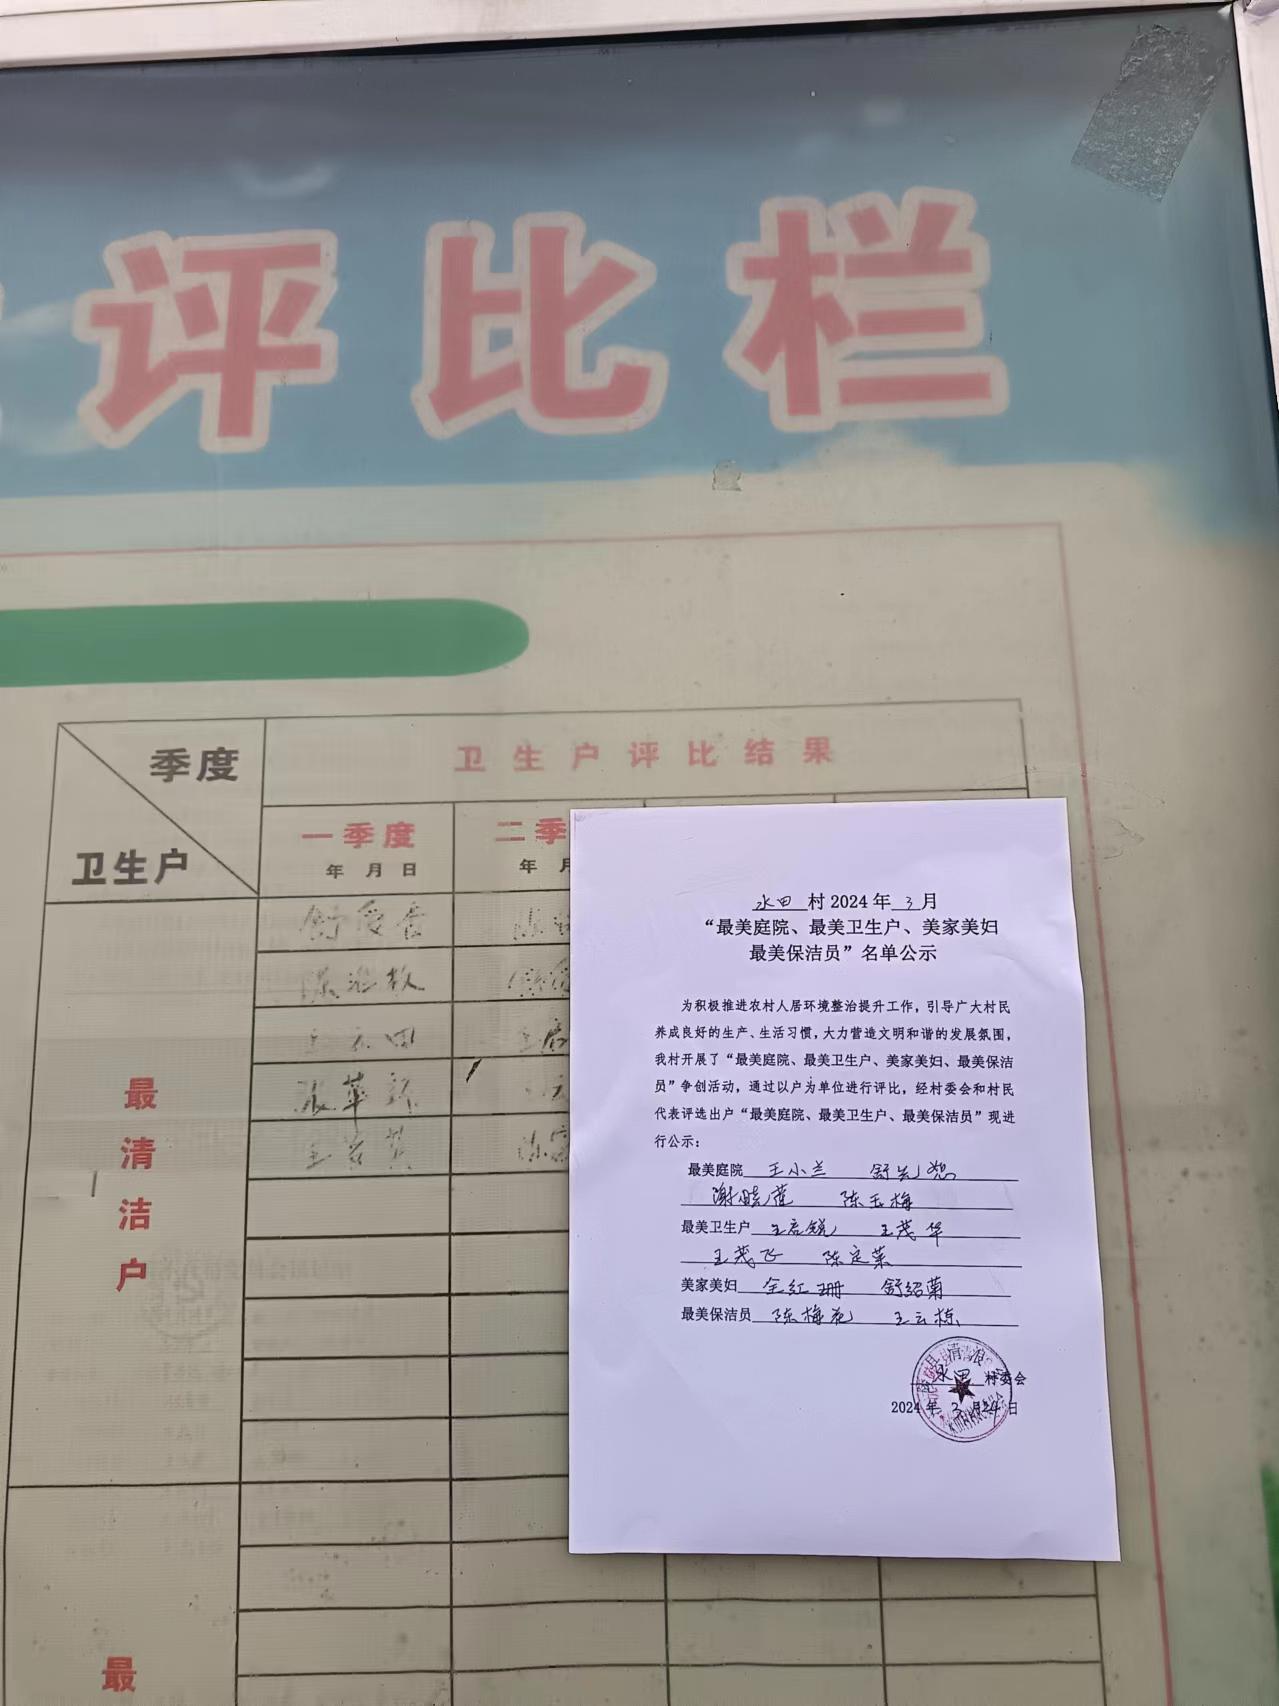 评比栏
季度
卫生户
卫生户评比结果
一季度
年 月 日
二季
年 月
最清洁户
最
水田 村 2024 年 3 月
“最美庭院、最美卫生户、美家美妇
最美保洁员”名单公示
为积极推进农村人居环境整治提升工作，引导广大村民
养成良好的生产、生活习惯，大力营造文明和谐的发展氛围，
我村开展了“最美庭院、最美卫生户、美家美妇、最美保洁
员”争创活动，通过以户为单位进行评比，经村委会和村民
代表评选出户“最美庭院、最美卫生户、最美保洁员”现进
行公示：
最美庭院 王小兰
陈玉梅
最美卫生户 王启锐 王茂华
王茂飞 陈定荣
美家美妇 全红珊 舒绍菊
最美保洁员 陈梅花 王云栋
水田 村委会
2024 年 3 月 24 日